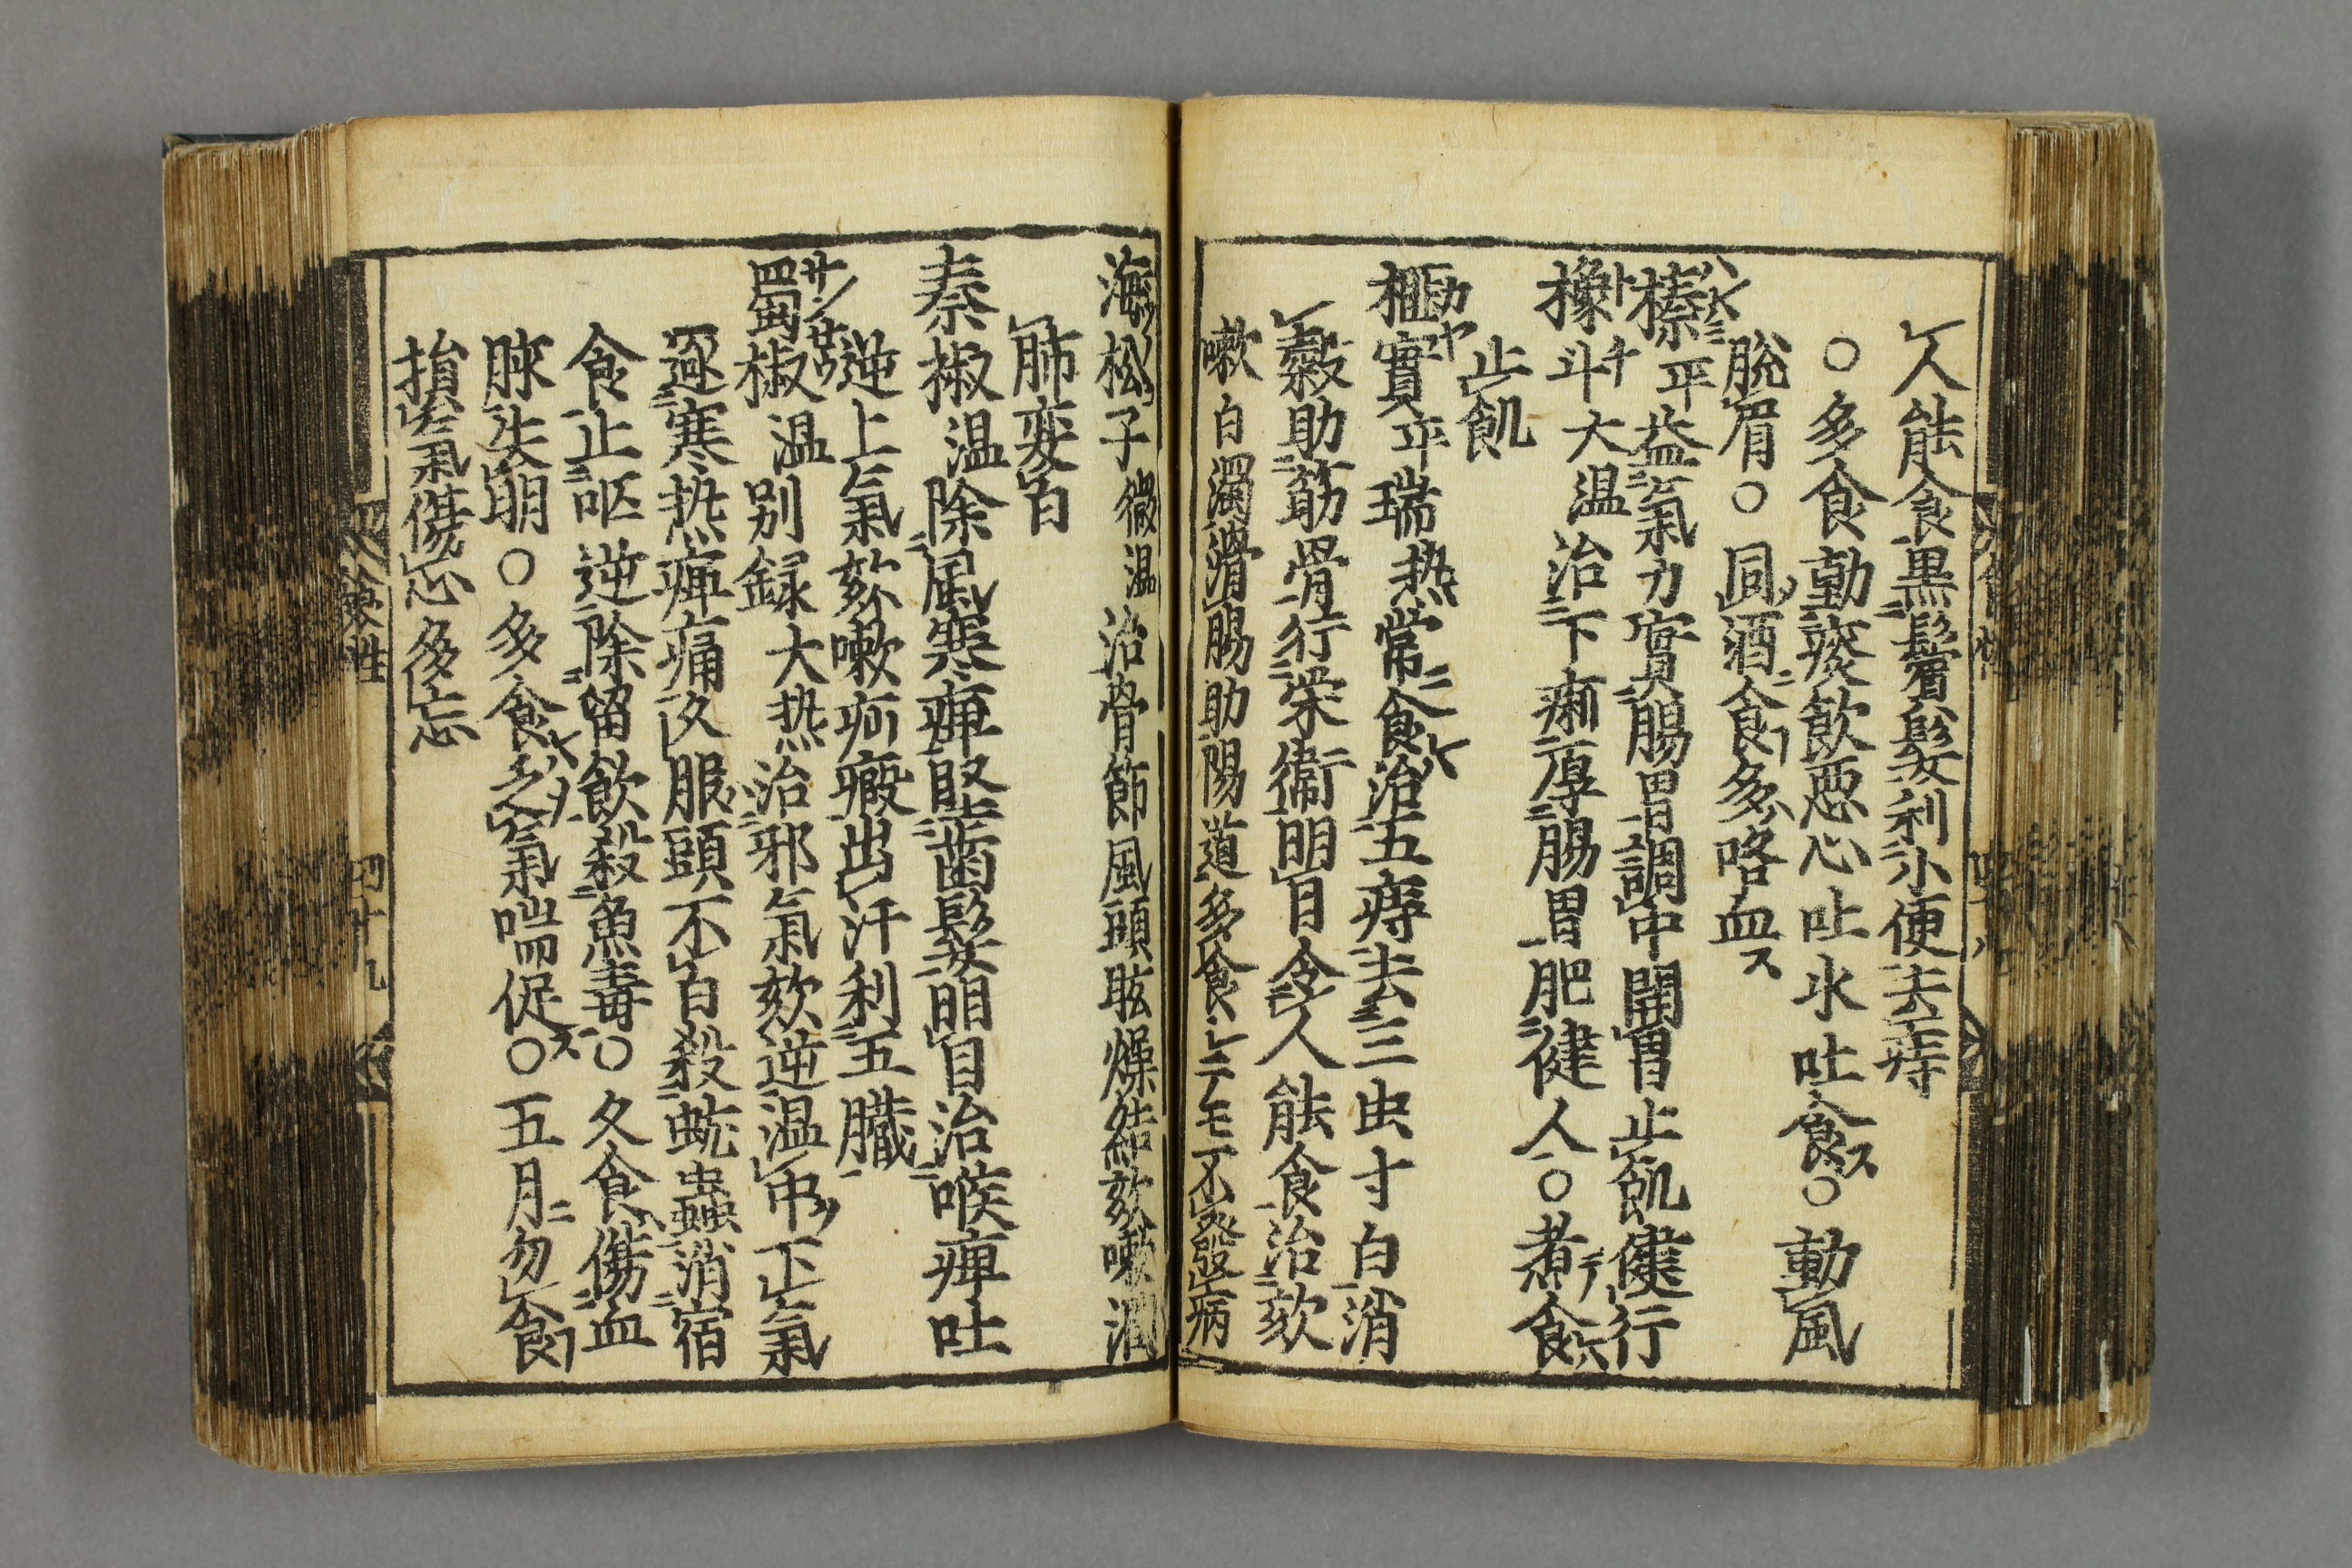 人能食黒鬢髪利小便去痔
○多食動痰飲悪心吐水吐食ス○動風
脱眉○同酒食フ多ハ咯血ス
榛平益氣力實腸胃調中開胃止飢健行
橡斗大温治下痢厚腸胃肥健人○煮テ食ヘハ
止飢
榧實平瑞热常ニ食ヘハ治五痔去三虫寸白消
穀助筋骨行栄衛明目令人能食治欬
嗽白濁滑腸助陽道多食シテモ不発病
海松子微温治骨節風頭眩燥結欬嗽潤
肺変白
秦椒温除風寒痺堅歯髪明目治喉痺吐
逆上氣欬嗽疝瘕出汗利五臓
蜀椒温别録大热治邪氣欬逆温中ヲ下氣
逐寒热痺痛久服ハ頭不白殺蚘蟲消宿
食止呕逆除留飲殺魚毒○久食ハ傷血
脉失明○多食ヘハ之ヲ氣喘促ス○五月ニ勿食フ
損氣傷心多忘
四十九